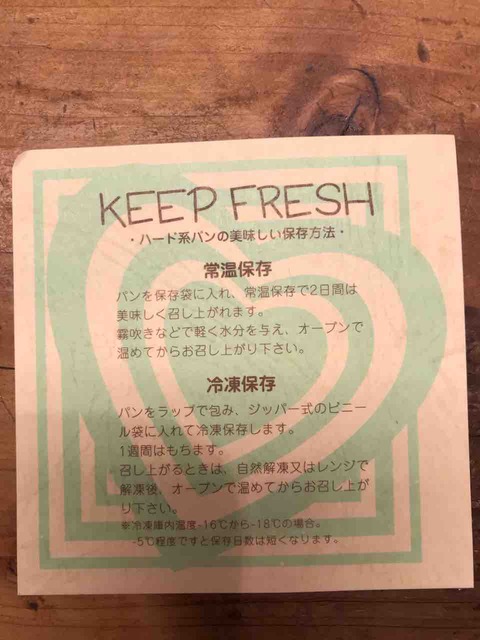 KEEP FRESH
・ハード系パンの美味しい保存方法・
常温保存
パンを保存袋に入れ、常温保存で2日間は
美味しく召し上がれます。
霧吹きなどで軽く水分を与え、オーブンで
温めてからお召し上がり下さい。
冷凍保存
パンをラップで包み、ジッパー式のビニー
ル袋に入れて冷凍保存します。
1週間はもちます。
召し上がるときは、自然解凍又はレンジで
解凍後、オーブンで温めてからお召し上が
り下さい。
※冷凍庫内温度-16℃から-18℃の場合。
-5℃程度ですと保存日数は短くなります。